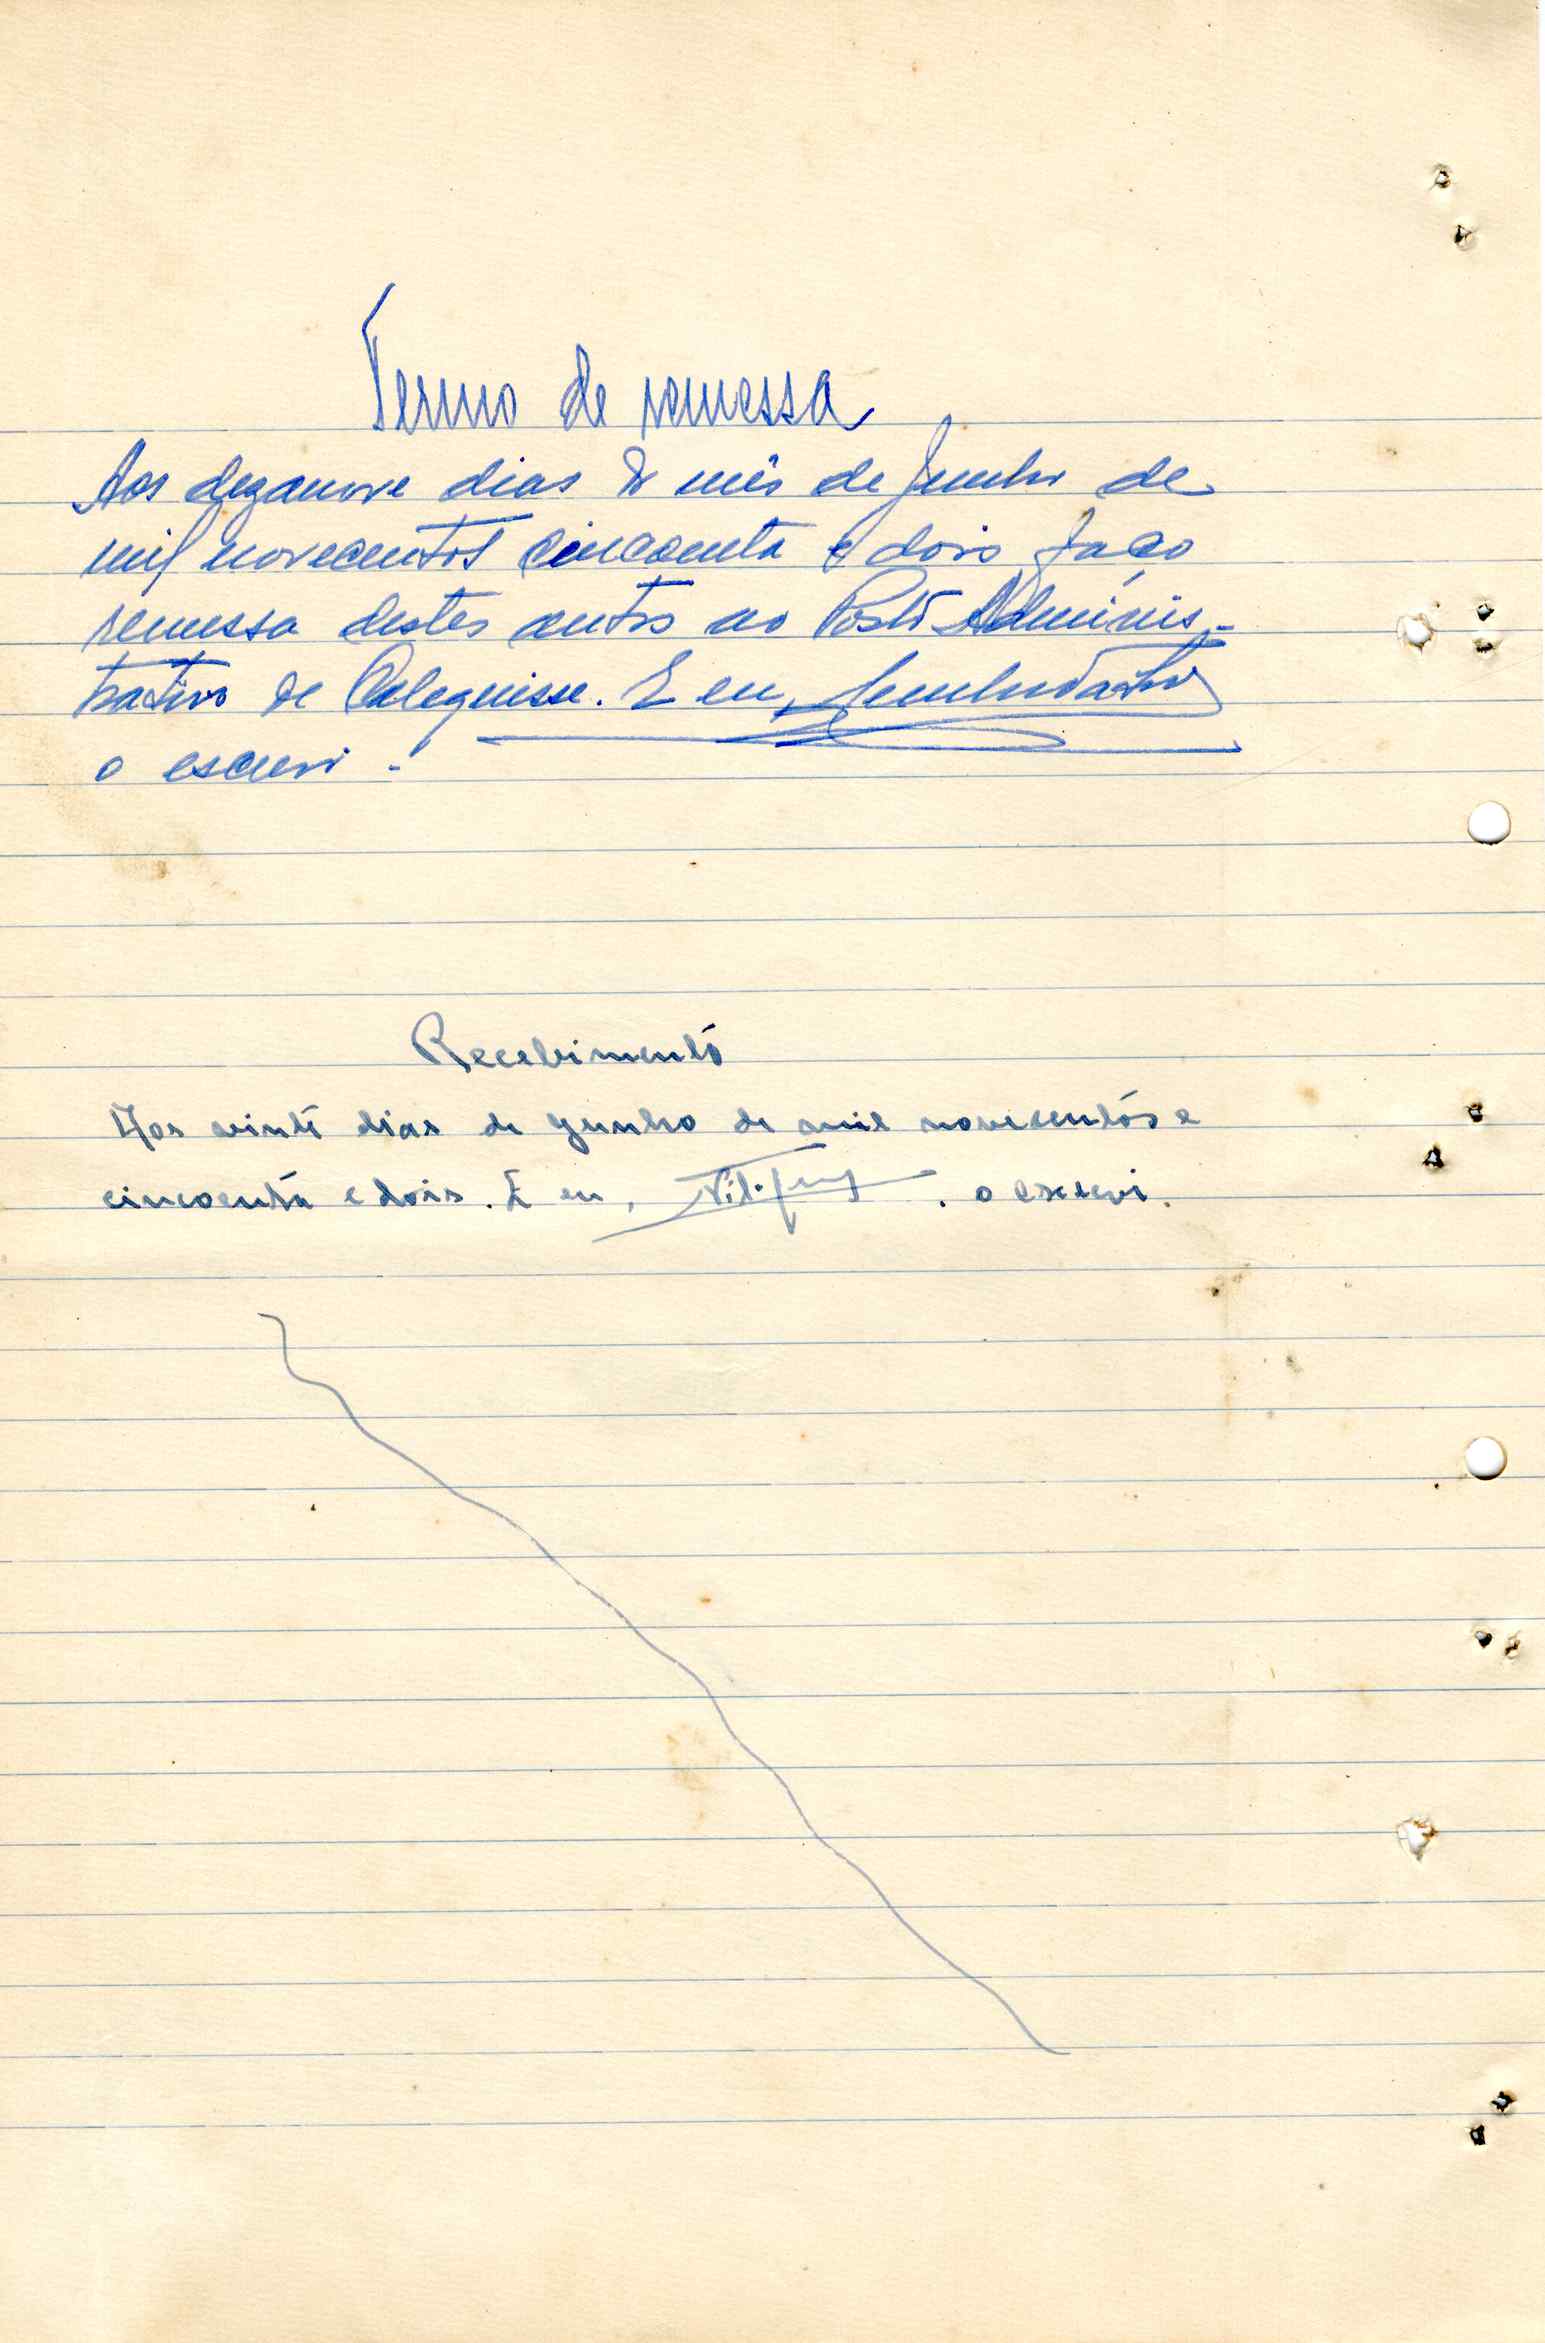 Termo de remessa
Aos dezanove dias do mês de Junho de
mil novecentos cincoenta e dois, faço
remessa destes autos ao Posto Adminis-
trativo de Caleguisse. E eu,
o escrevi.
Recebimento
Aos vinte dias de Junho de mil novecentos e
cincoenta e dois. E eu, . o escrevi.